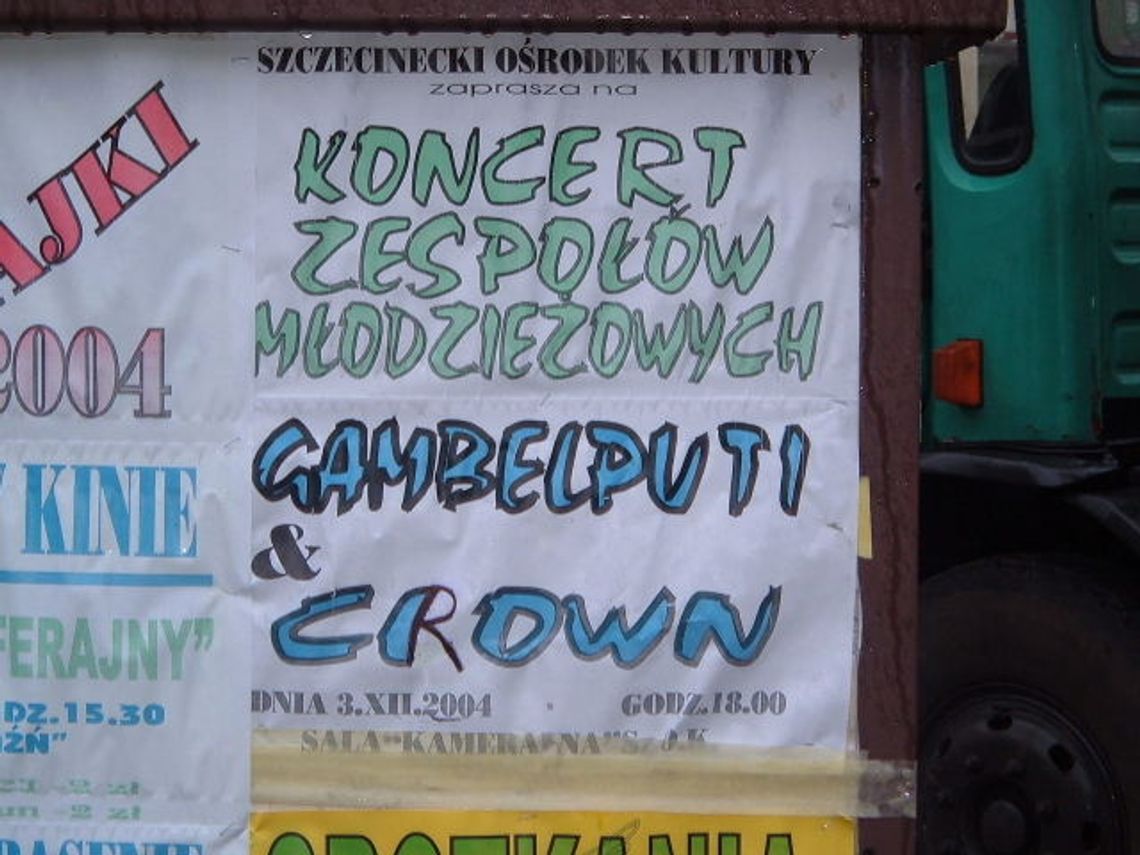 SZCZECINECKI OŚRODEK KULTURY
zaprasza na
KONCERT
ZESPOŁÓW
MŁODZIEŻOWYCH
GAMBELPUTI
&
CROWN
DNIA 3.XII.2004 GODZ.18.00
SALA "KAMERALNA"
AJKI
2004
KINIE
FERAJNY"
DZ.15.30
2 zł
2 zł
SPOTKANIA